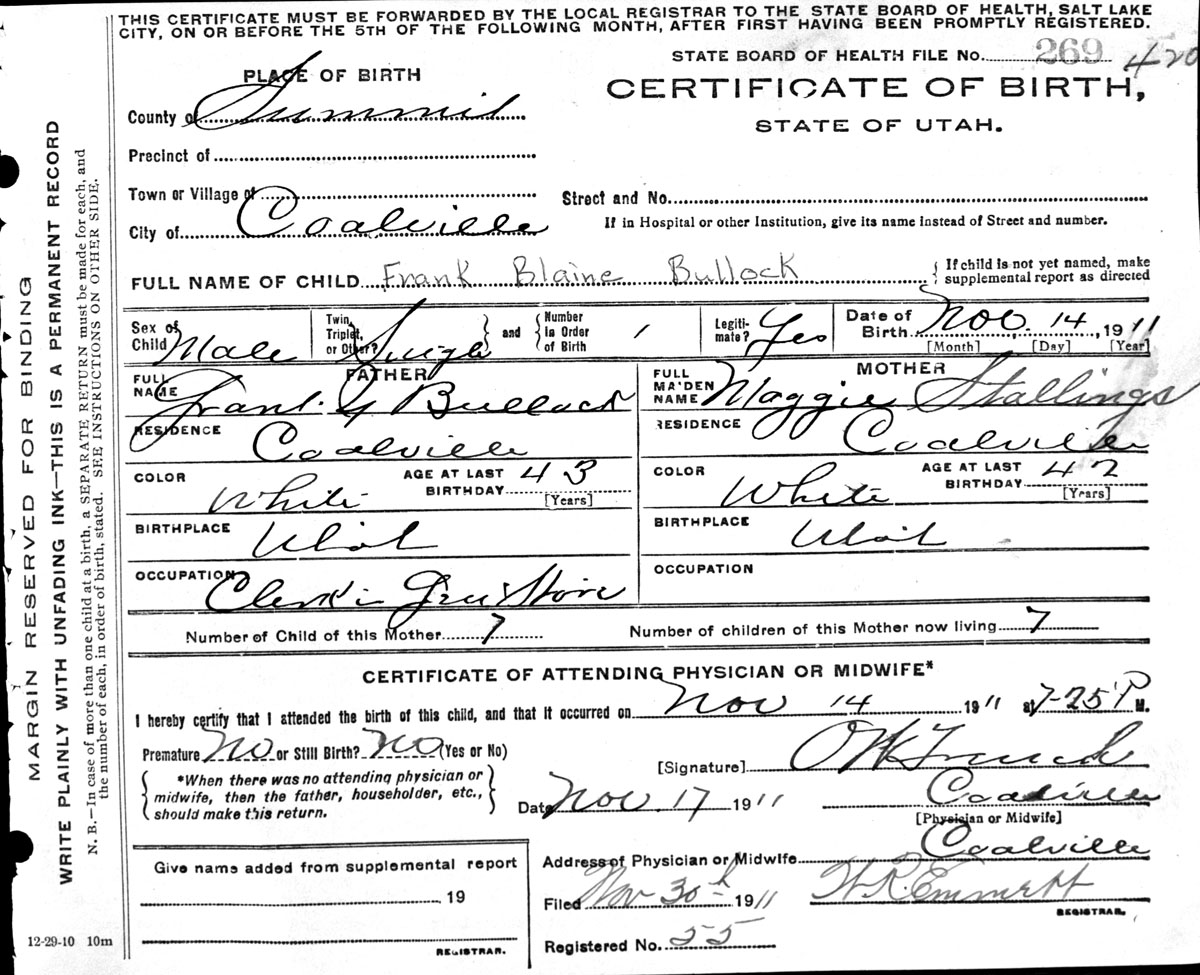 THIS CERTIFICATE MUST BE FORWARDED BY THE LOCAL REGISTRAR TO THE STATE BOARD OF HEALTH, SALT LAKE
CITY, ON OR BEFORE THE 5TH OF THE FOLLOWING MONTH, AFTER FIRST HAVING BEEN PROMPTLY REGISTERED.
STATE BOARD OF HEALTH FILE No. 269 420
PLACE OF BIRTH
CERTIFICATE OF BIRTH,
County of Summit
STATE OF UTAH.
Precinct of
Town or Village of
Street and No.
City of Coalville
If in Hospital or other Institution, give its name instead of Street and number.
FULL NAME OF CHILD Frank Blaine Bullock { If child is not yet named, make
supplemental report as directed
Sex of Child Male
Twin, Triplet, or Other? Single
and
Number in Order of Birth 1
Legiti-mate? Yes
Date of Birth Nov. 14, 1911
[Month] [Day] [Year]
FATHER
FULL NAME Frank Y Bullock
RESIDENCE Coalville
COLOR White
AGE AT LAST BIRTHDAY 43
[Years]
BIRTHPLACE Utah
OCCUPATION Clerk in Store
MOTHER
FULL MAIDEN NAME Maggie Stallings
RESIDENCE Coalville
COLOR White
AGE AT LAST BIRTHDAY 42
[Years]
BIRTHPLACE Utah
OCCUPATION
Number of Child of this Mother 7
Number of children of this Mother now living 7
CERTIFICATE OF ATTENDING PHYSICIAN OR MIDWIFE*
I hereby certify that I attended the birth of this child, and that it occurred on Nov 14 1911 at 7-25 P M.
Premature No or Still Birth? No (Yes or No)
*When there was no attending physician or
midwife, then the father, householder, etc.,
should make this return.
[Signature]
Date Nov 17 1911
Coalville
[Physician or Midwife]
Address of Physician or Midwife Coalville
Filed Nov 30th 1911 H.R. Emmett
REGISTRAR.
Registered No. 55
Give name added from supplemental report
19
REGISTRAR.
12-29-10 10m
MARGIN RESERVED FOR BINDING
WRITE PLAINLY WITH UNFADING INK—THIS IS A PERMANENT RECORD
N. B.—In case of more than one child at a birth, a SEPARATE RETURN must be made for each, and
the number of each, in order of birth, stated. SEE INSTRUCTIONS ON OTHER SIDE.